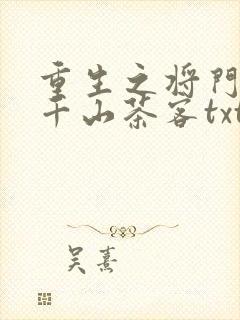 重生之将門
千山茶客txt
吴熹